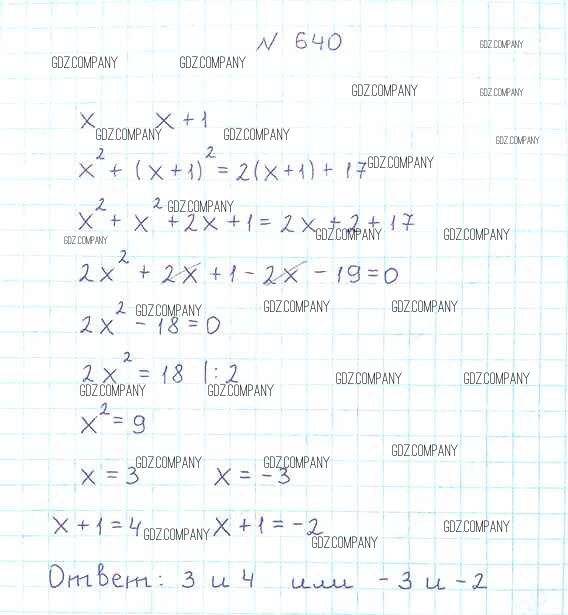 N 640
GDZ.COMPANY
GDZ.COMPANY GDZ.COMPANY
GDZ.COMPANY GDZ.COMPANY
x x + 1
GDZ.COMPANY GDZ.COMPANY GDZ.COMPANY
x² + (x + 1)² = 2(x + 1) + 17 GDZ.COMPANY
GDZ.COMPANY
x² + x² + 2x + 1 = 2x + 2 + 17
GDZ.COMPANY GDZ.COMPANY GDZ.COMPANY
2x² + 2x + 1 - 2x - 19 = 0
GDZ.COMPANY GDZ.COMPANY GDZ.COMPANY
2x² - 18 = 0
2x² = 18 |: 2 GDZ.COMPANY GDZ.COMPANY
GDZ.COMPANY GDZ.COMPANY
x² = 9
GDZ.COMPANY
GDZ.COMPANY GDZ.COMPANY
x = 3 x = -3
x + 1 = 4 GDZ.COMPANY x + 1 = -2 GDZ.COMPANY
GDZ.COMPANY
Ответ: 3 и 4 или -3 и -2